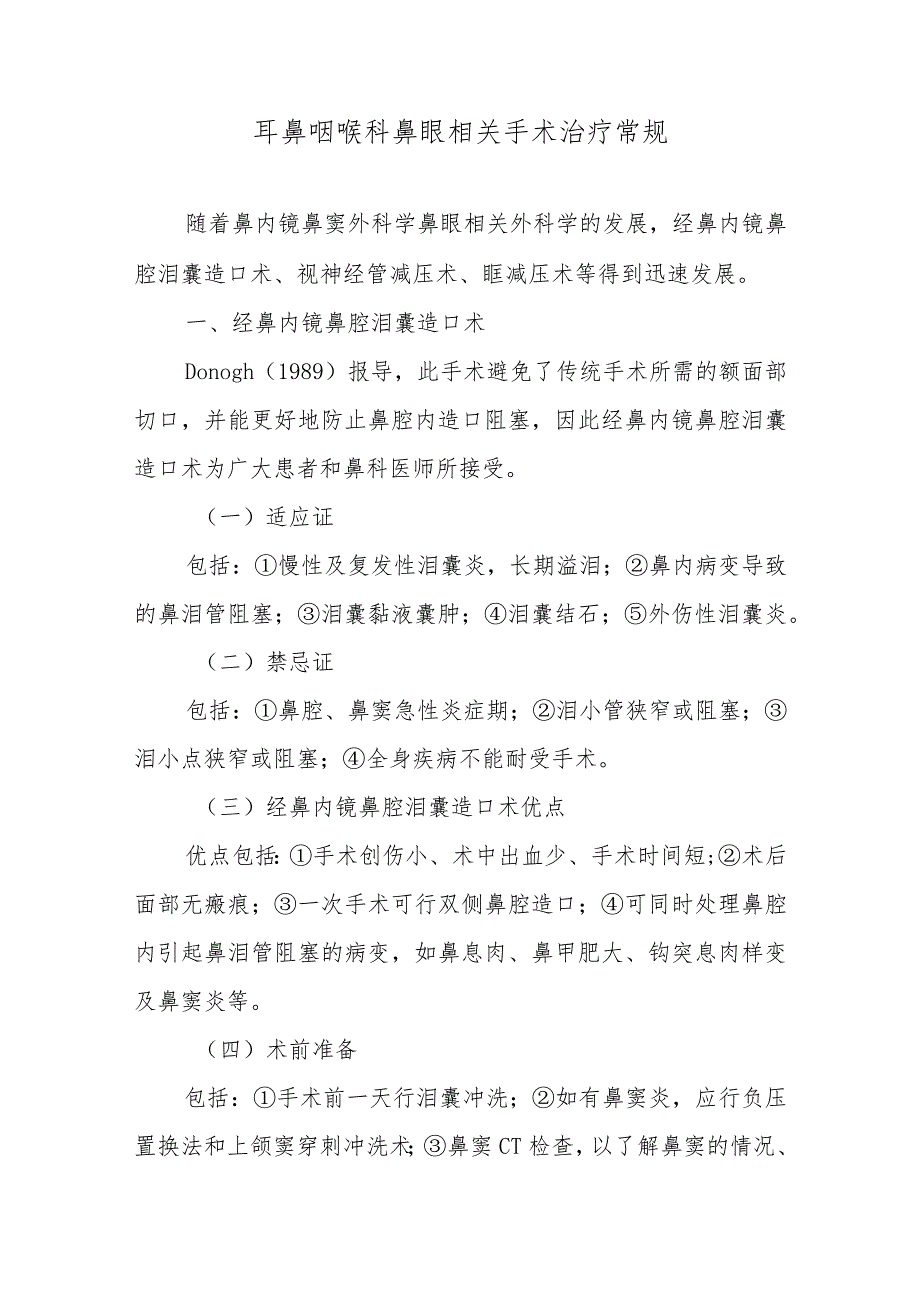 耳鼻咽喉科鼻眼相关手术治疗常规
随着鼻内镜鼻窦外科学鼻眼相关外科学的发展，经鼻内镜鼻
腔泪囊造口术、视神经管减压术、眶减压术等得到迅速发展。
一、经鼻内镜鼻腔泪囊造口术
Donogh（1989）报导，此手术避免了传统手术所需的额面部
切口，并能更好地防止鼻腔内造口阻塞，因此经鼻内镜鼻腔泪囊
造口术为广大患者和鼻科医师所接受。
（一）适应证
包括：①慢性及复发性泪囊炎，长期溢泪；②鼻内病变导致
的鼻泪管阻塞；③泪囊黏液囊肿；④泪囊结石；⑤外伤性泪囊炎。
（二）禁忌证
包括：①鼻腔、鼻窦急性炎症期；②泪小管狭窄或阻塞；③
泪小点狭窄或阻塞；④全身疾病不能耐受手术。
（三）经鼻内镜鼻腔泪囊造口术优点
优点包括：①手术创伤小、术中出血少、手术时间短;②术后
面部无瘢痕；③一次手术可行双侧鼻腔造口；④可同时处理鼻腔
内引起鼻泪管阻塞的病变，如鼻息肉、鼻甲肥大、钩突息肉样变
及鼻窦炎等。
（四）术前准备
包括：①手术前一天行泪囊冲洗；②如有鼻窦炎，应行负压
置换法和上颌窦穿刺冲洗术；③鼻窦CT检查，以了解鼻窦的情况、